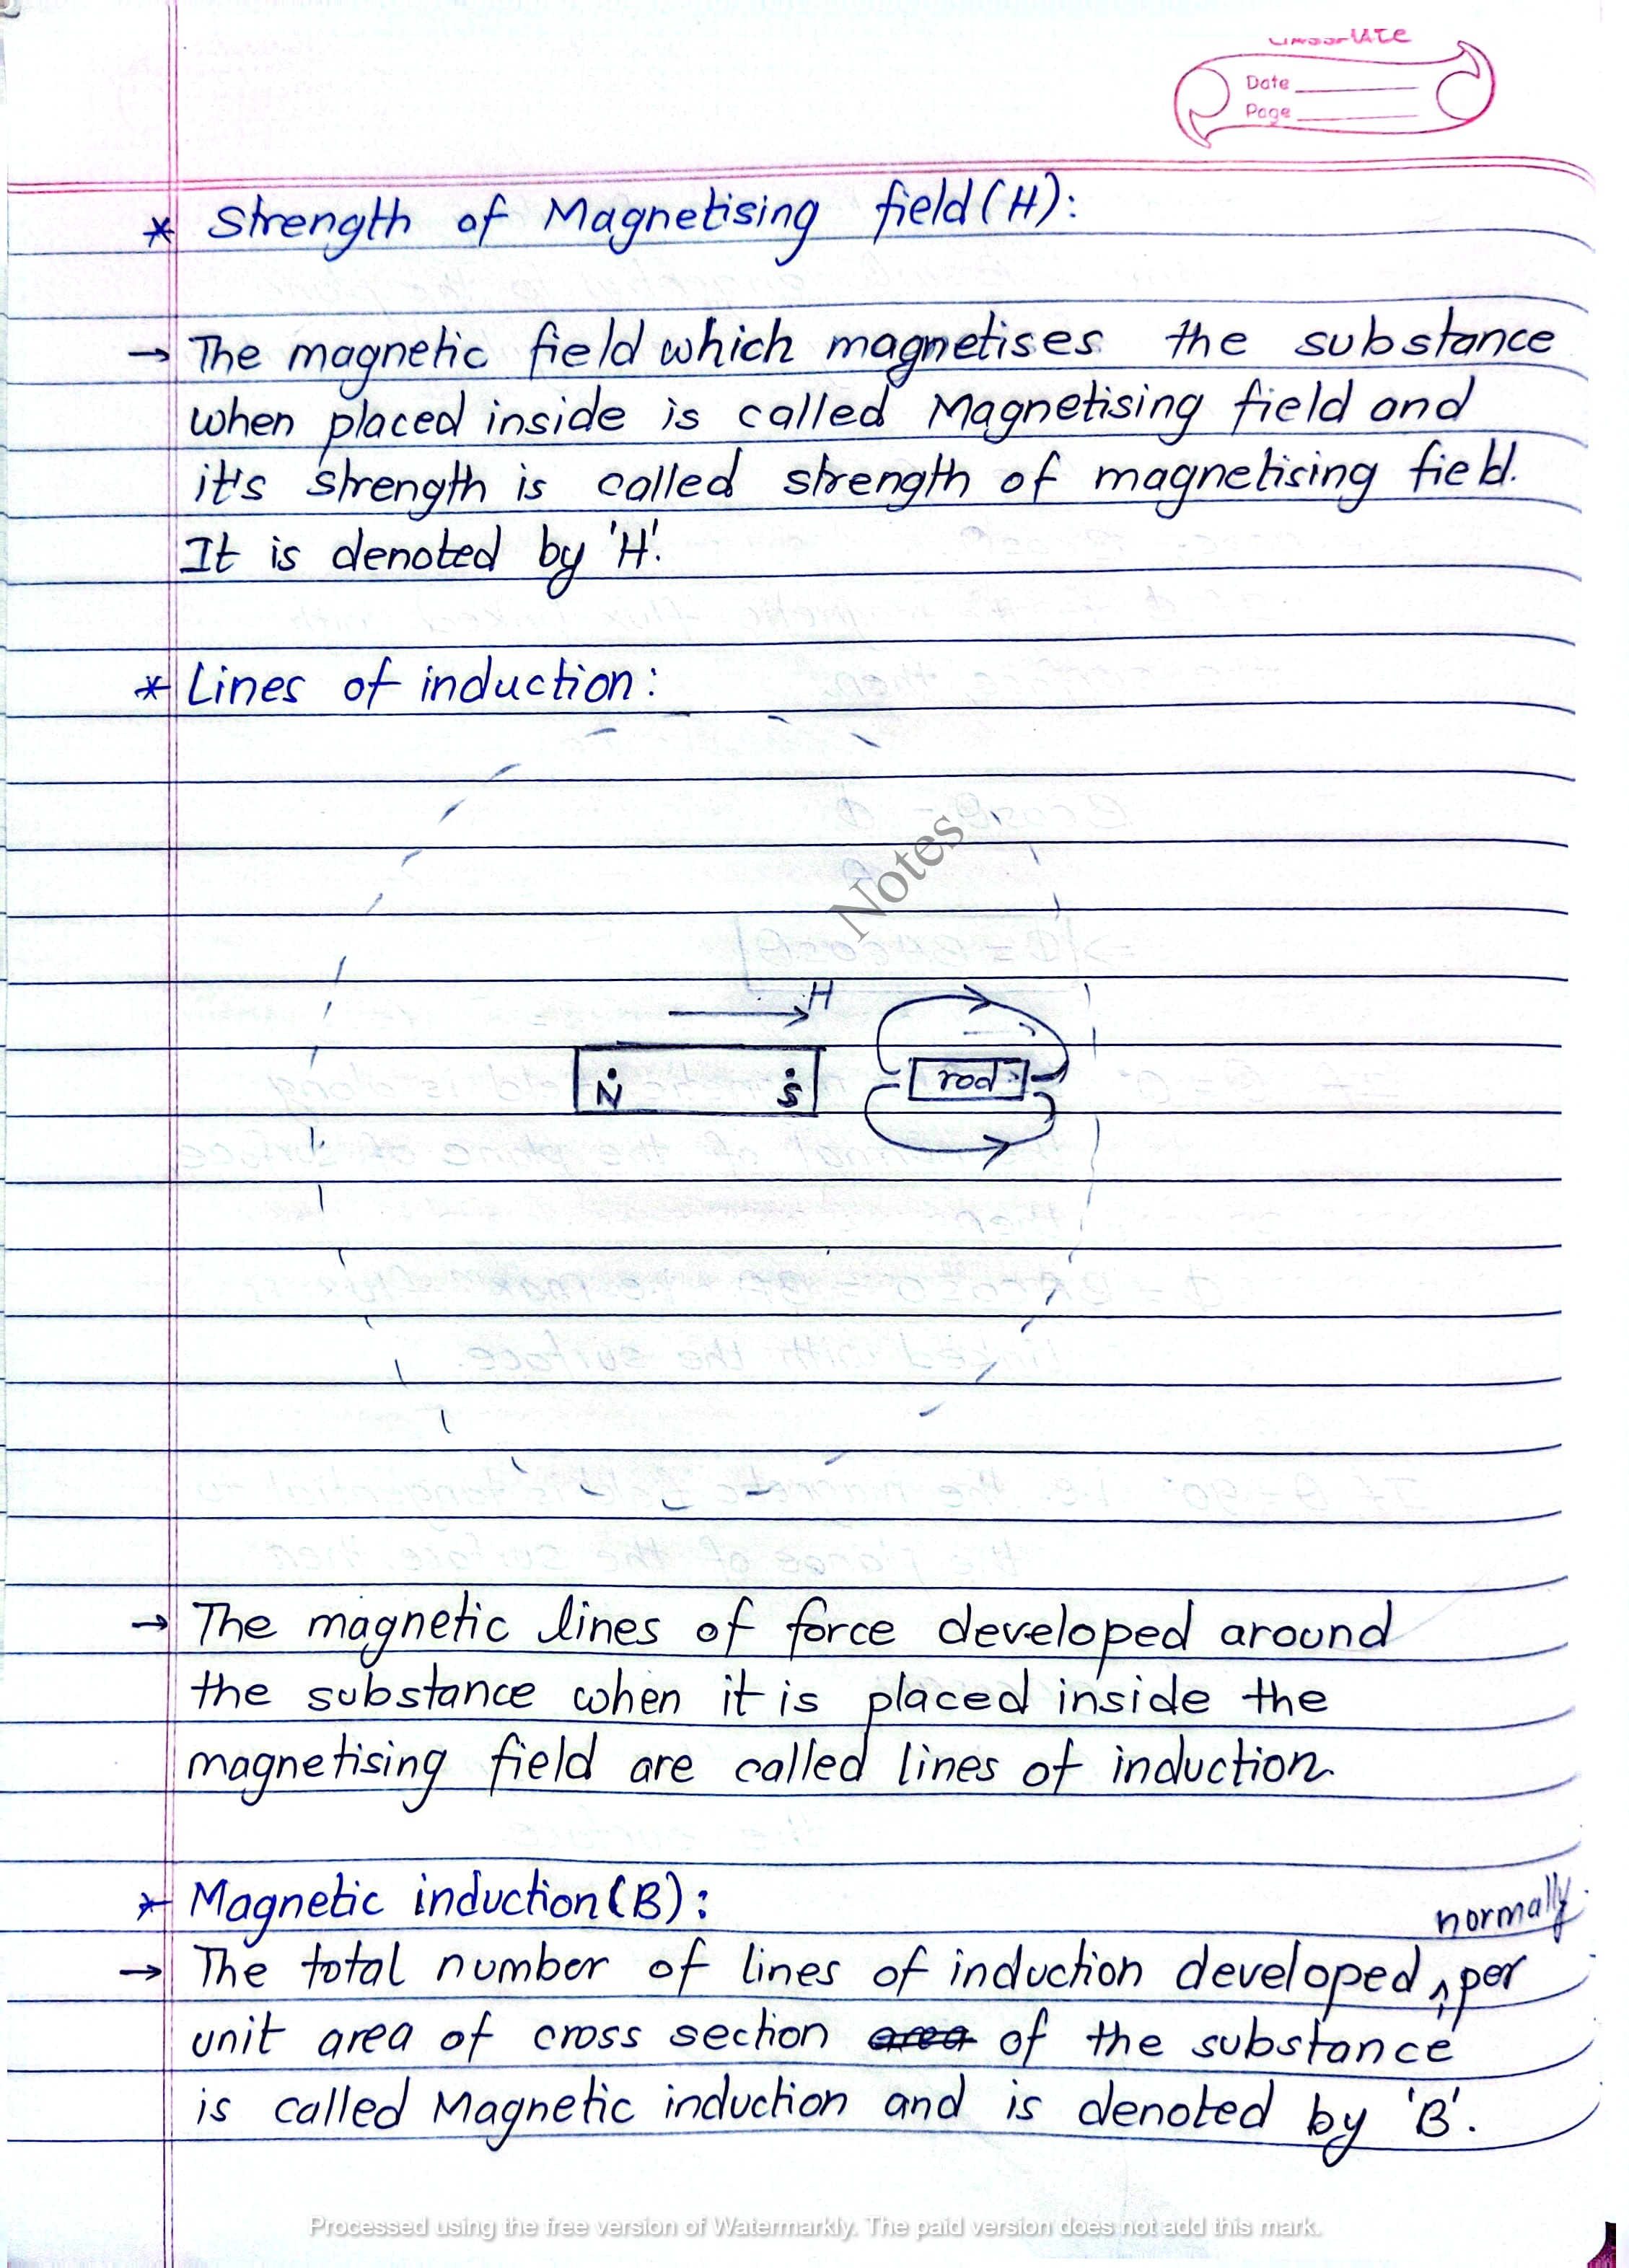 Date
Page
* Strength of Magnetising field (H):
→ The magnetic field which magnetises the substance
when placed inside is called Magnetising field and
it's strength is called strength of magnetising field.
It is denoted by 'H'.
* Lines of induction:
Notes
H
N S rod
→ The magnetic lines of force developed around
the substance when it is placed inside the
magnetising field are called lines of induction.
* Magnetic induction (B):
normally
→ The total number of lines of induction developed ^ per
unit area of cross section area of the substance
is called Magnetic induction and is denoted by 'B'.
Processed using the free version of Watermarkly. The paid version does not add this mark.